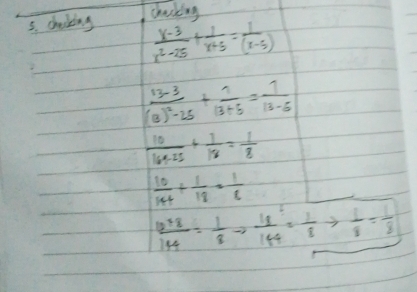 3. checking
checking
x-3/x²-25 + 1/x+5 = 1/(x-5)
13-3/(13)²-25 + 1/13+5 = 1/13-5
10/169-25 + 1/18 = 1/8
10/144 + 1/18 = 1/8
10+8/144 = 1/8 → 18/144 = 1/8 → 1/8 = 1/8